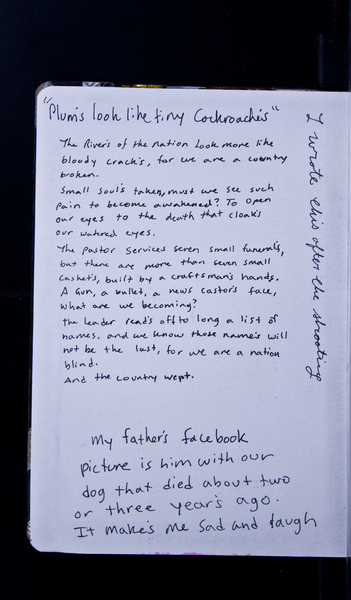 "Plum's look like tiny Cockroache's"
The River's of the nation look more like
bloody crack's, for we are a country
broken.
Small soul's taken, must we see such
pain to become awakened? To open
our eyes to the death that cloak's
our watered eyes.
The Pastor Services seven small funerals,
but there are more than seven small
casket's, built by a craftsman's hands.
A Gun, a bullet, a news castor's face,
what are we becoming?
the leader read's off to long a list of
names, and we know those name's will
not be the last, for we are a nation
blind.
And the country wept.
My father's facebook
picture is him with our
dog that died about two
or three year's ago.
It make's me sad and laugh
I wrote this after the shooting